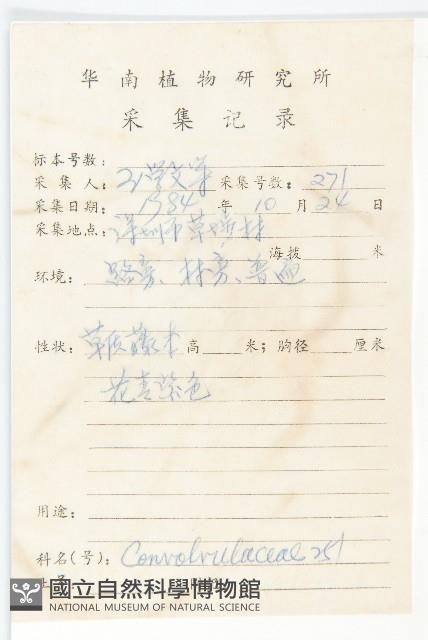 华南植物研究所
采集记录
标本号数:
采集人: 学文 采集号数: 271
采集日期: 1984 年 10 月 24 日
采集地点: 深圳市草埔林
海拔 米
环境: 路旁、林旁、普遍
性状: 草质藤本 高 米; 胸径 厘米
花青紫色
用途:
科名(号): Convolvulaceae 251
國立自然科學博物館
NATIONAL MUSEUM OF NATURAL SCIENCE